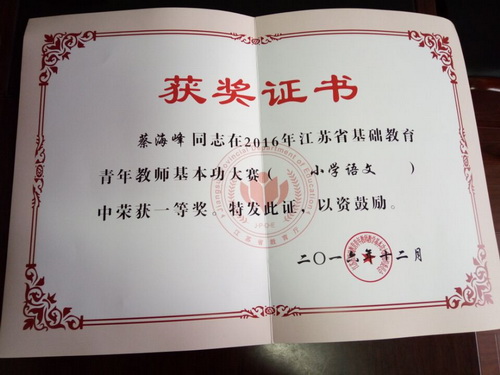 获奖证书
蔡海峰同志在2016年江苏省基础教育
青年教师基本功大赛（ 小学语文 ）
中荣获一等奖。特发此证，以资鼓励。
二〇一六年十二月
Jiangsu Provincial Department of Education
JPDE
江苏省教育厅